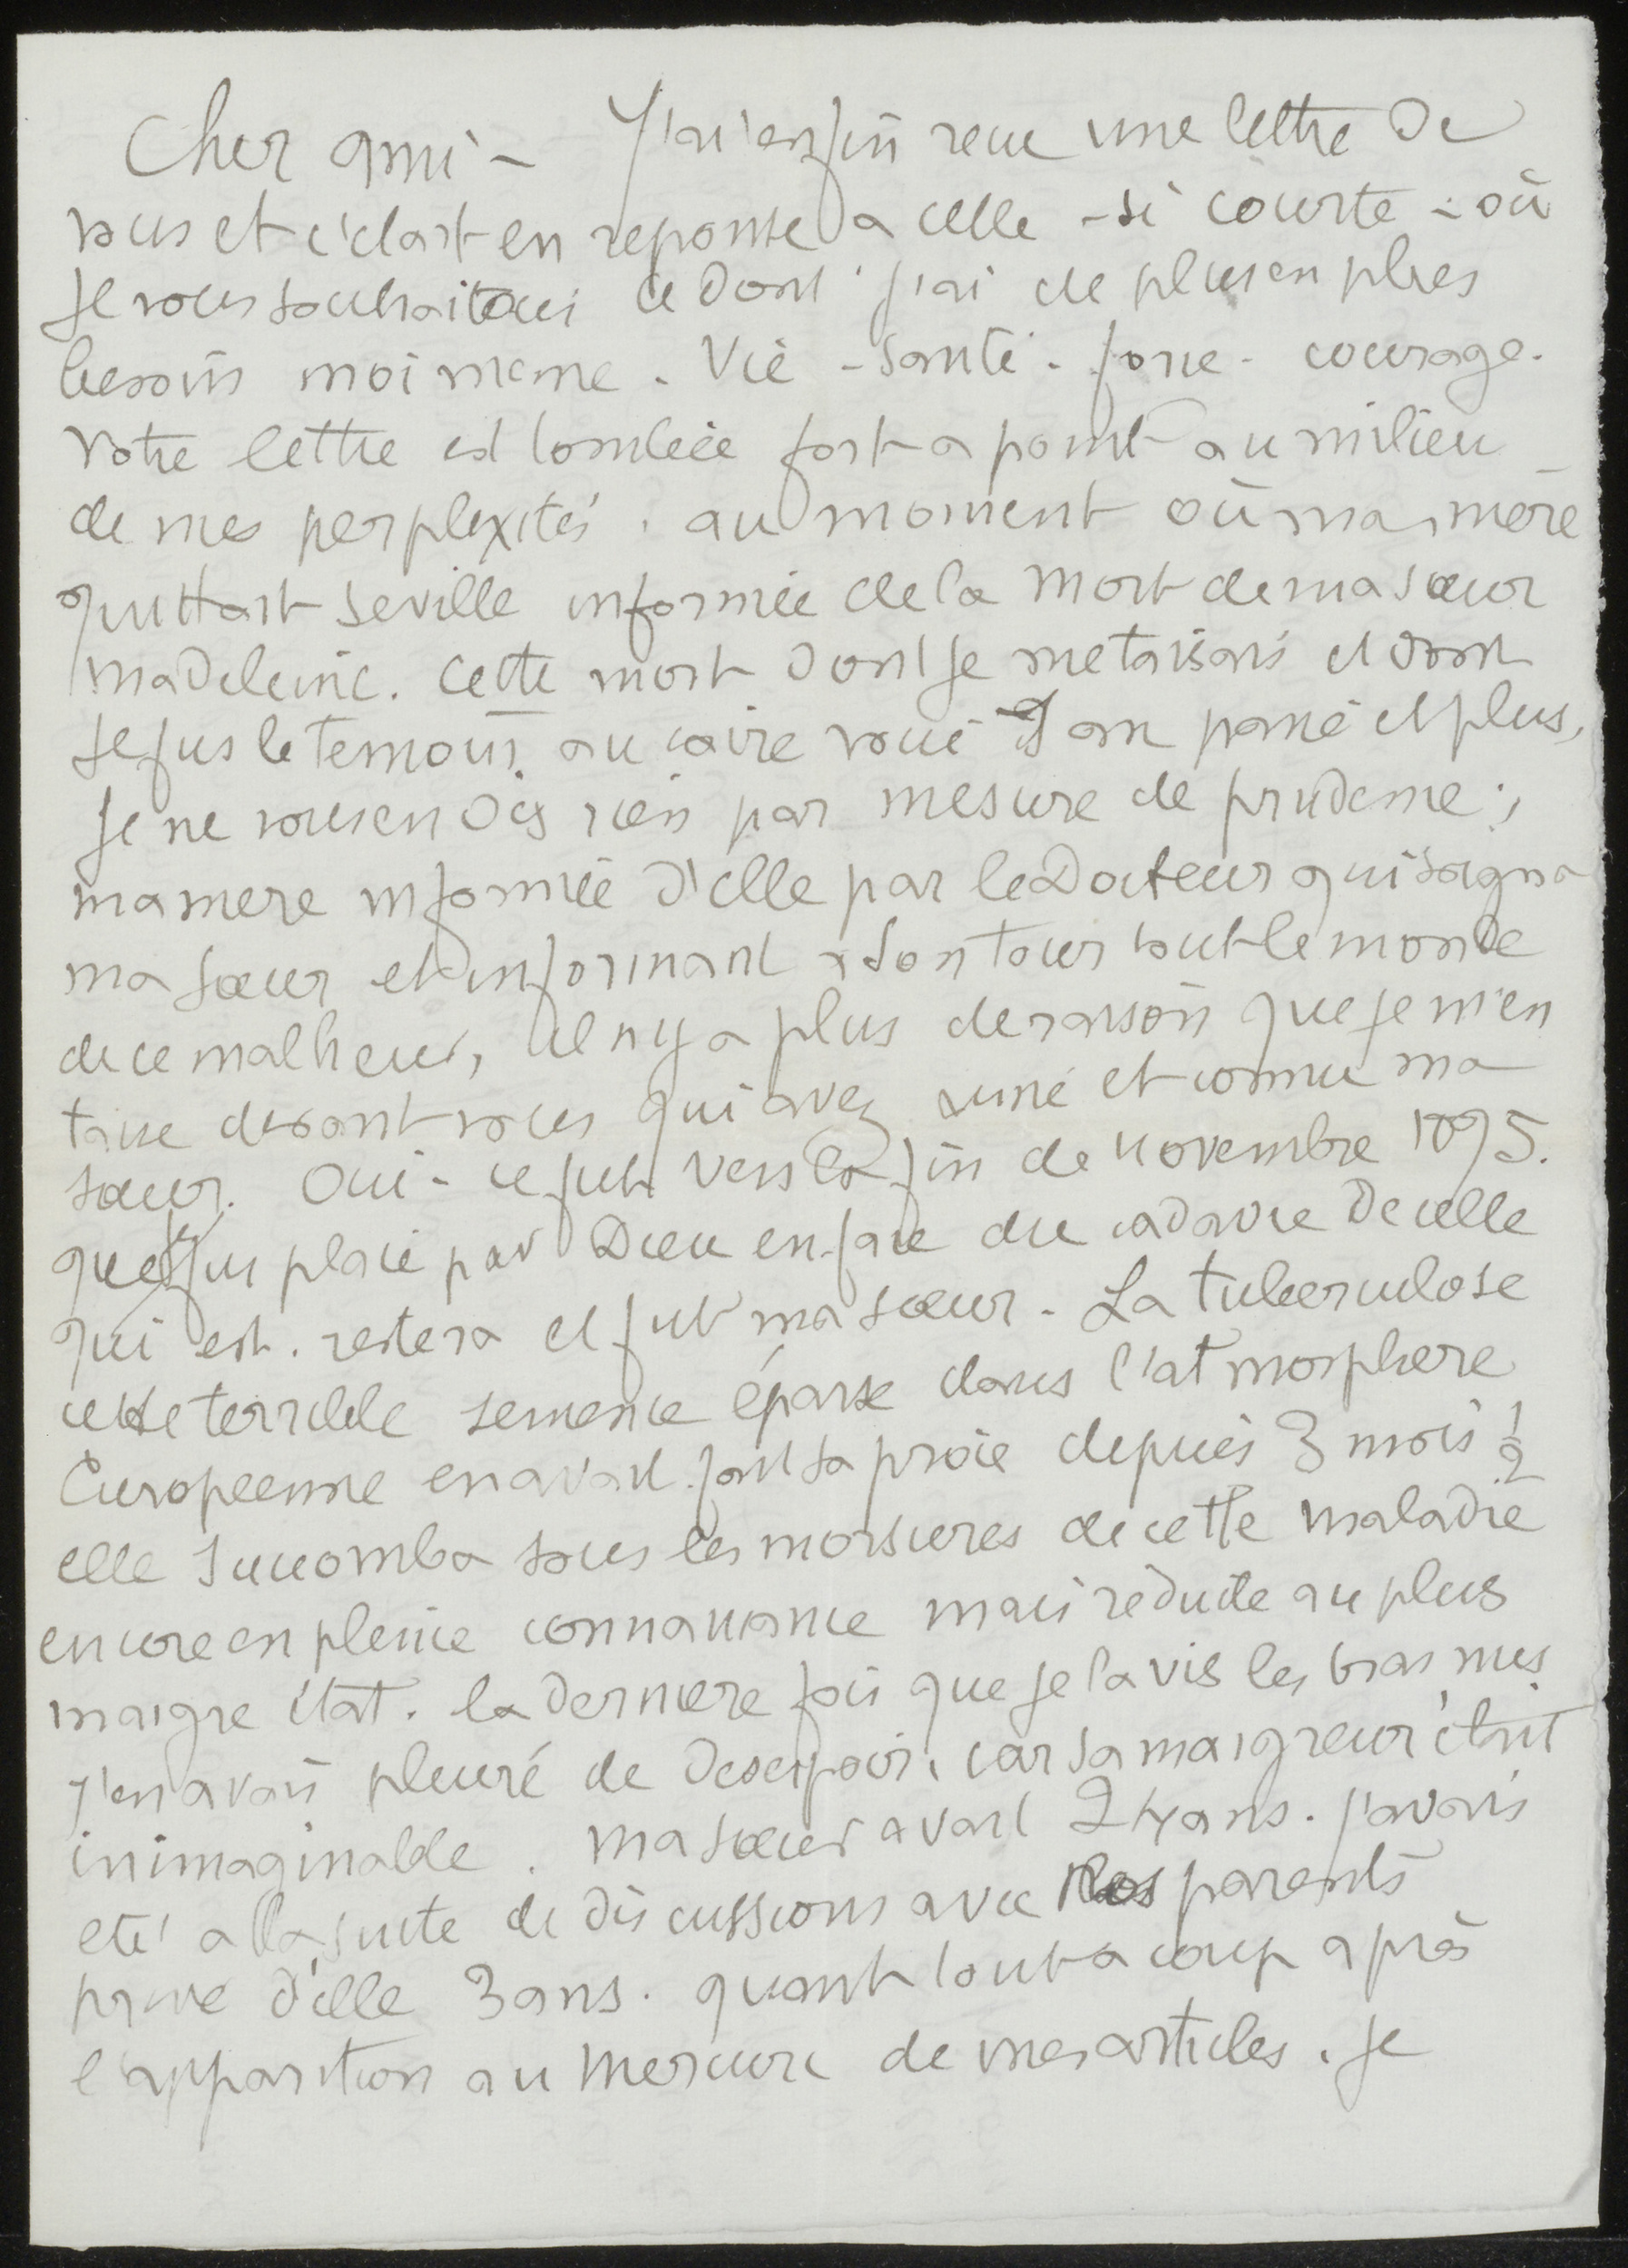 Cher ami – J'ai enfin recu une lettre de
vous et c'etait en reponse a celle – si courte – où
je vous souhaitais ce dont j'ai de plus en plus
besoin moi meme. Vie – santé – force – courage.
Votre lettre est tombée fort a point au milieu
de mes perplexités. au moment où ma mère
quittait Seville informée de la mort de ma sœur
Madeleine. Cette mort dont je me taisais et dont
je fus le temoin au caire voici I an passé et plus,
je ne vous en dis rien par mesure de prudence;
ma mere informée d'elle par le Docteur qui soigna
ma sœur et informant a son tour tout le monde
de ce malheur, il n'y a plus de raison que je m'en
taise devant vous qui avez aimé et connu ma
sœur. Oui – ce fut vers la fin de novembre 1895.
que je fus placé par Dieu en face du cadavre de celle
qui est. restera et fut ma sœur – La tuberculose
cette terrible semence éparse dans l'atmosphere
Européenne en avait fait sa proie depuis 3 mois ½
elle succomba sous les morsures de cette maladie
encore en pleine connaissance mais réduite au plus
maigre état. la derniere fois que je la vis les bras nus
j'en avais pleuré de desespoir, car sa maigreur était
inimaginable. Ma sœur avait 24 ans. j'avais
eté a la suite de discussions avec nos parents
privé d'elle 3 ans. quant tout a coup après
l'apparition au Mercure de mes articles. je